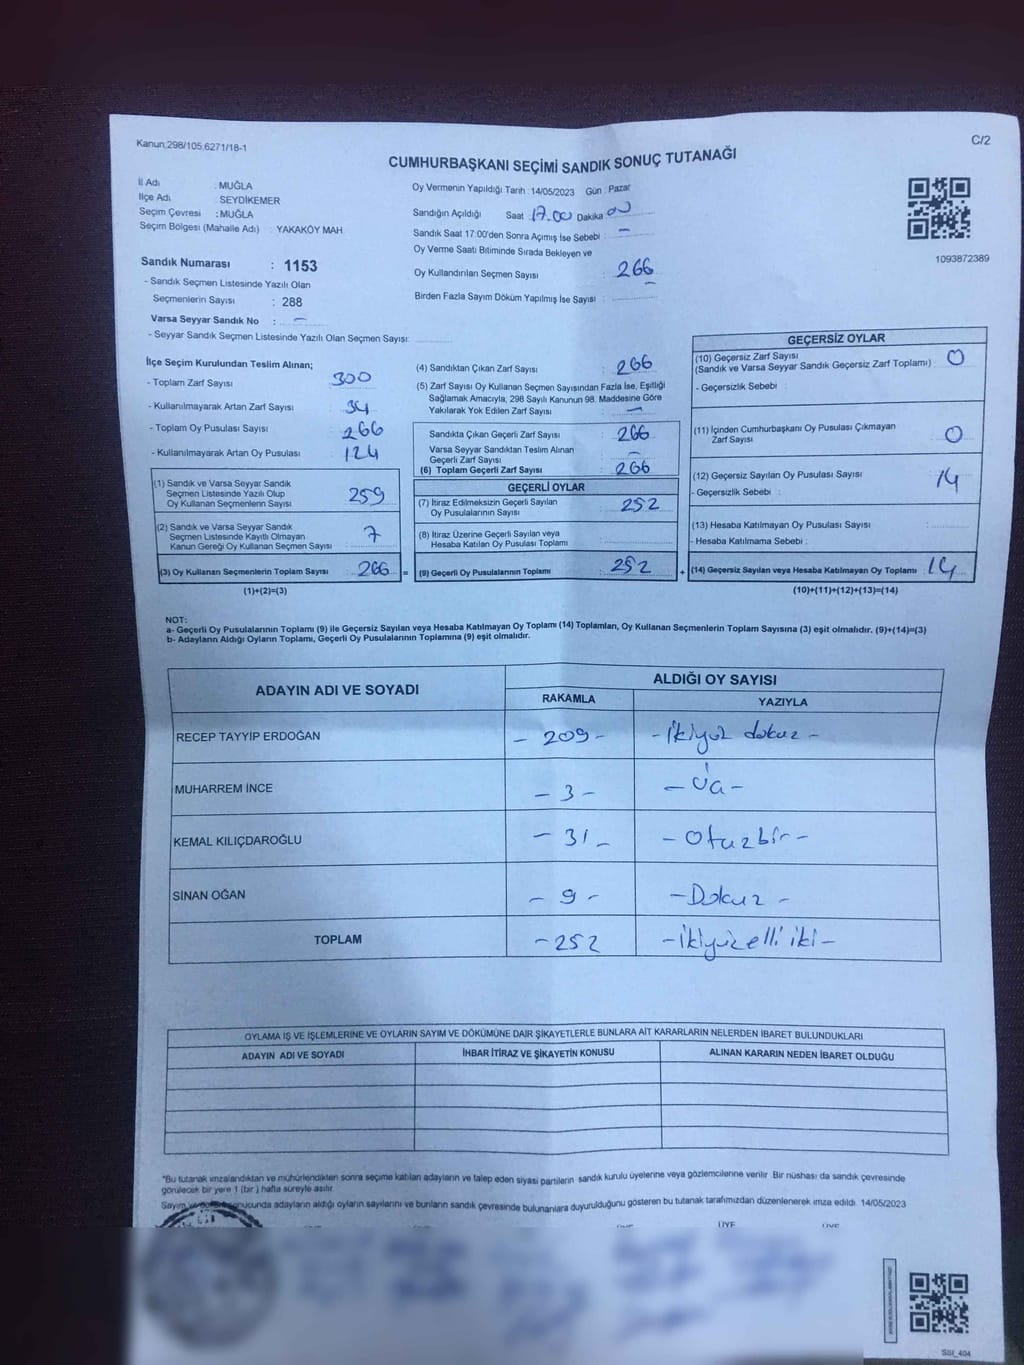 Kanun;298/105,6271/18-1
C/2
CUMHURBAŞKANI SEÇİMİ SANDIK SONUÇ TUTANAĞI
İl Adı : MUĞLA
İlçe Adı : SEYDİKEMER
Seçim Çevresi : MUĞLA
Seçim Bölgesi (Mahalle Adı) : YAKAKÖY MAH.
Sandık Numarası : 1153
- Sandık Seçmen Listesinde Yazılı Olan
Seçmenlerin Sayısı : 288
Varsa Seyyar Sandık No : -
- Seyyar Sandık Seçmen Listesinde Yazılı Olan Seçmen Sayısı:
Oy Vermenin Yapıldığı Tarih : 14/05/2023 Gün : Pazar
Sandığın Açıldığı Saat : 17.00 Dakika 00
Sandık Saat 17:00'den Sonra Açımış İse Sebebi : -
Oy Verme Saati Bitiminde Sırada Bekleyen ve
Oy Kullandırılan Seçmen Sayısı : 266
Birden Fazla Sayım Döküm Yapılmış İse Sayısı :
1093872389
İlçe Seçim Kurulundan Teslim Alınan;
- Toplam Zarf Sayısı : 300
- Kullanılmayarak Artan Zarf Sayısı : 34
- Toplam Oy Pusulası Sayısı : 266
- Kullanılmayarak Artan Oy Pusulası : 124
(1) Sandık ve Varsa Seyyar Sandık
Seçmen Listesinde Yazılı Olup
Oy Kullanan Seçmenlerin Sayısı : 259
(2) Sandık ve Varsa Seyyar Sandık
Seçmen Listesinde Kayıtlı Olmayan
Kanun Gereği Oy Kullanan Seçmen Sayısı : 7
(3) Oy Kullanan Seçmenlerin Toplam Sayısı : 266 =
(1)+(2)=(3)
(4) Sandıktan Çıkan Zarf Sayısı : 266
(5) Zarf Sayısı Oy Kullanan Seçmen Sayısından Fazla İse, Eşitliği
Sağlamak Amacıyla; 298 Sayılı Kanunun 98. Maddesine Göre
Yakılarak Yok Edilen Zarf Sayısı : -
Sandıkta Çıkan Geçerli Zarf Sayısı : 266
Varsa Seyyar Sandıktan Teslim Alınan
Geçerli Zarf Sayısı : -
(6) Toplam Geçerli Zarf Sayısı : 266
GEÇERLİ OYLAR
(7) İtiraz Edilmeksizin Geçerli Sayılan
Oy Pusulalarının Sayısı : 252
(8) İtiraz Üzerine Geçerli Sayılan veya
Hesaba Katılan Oy Pusulası Toplamı :
(9) Geçerli Oy Pusulalarının Toplamı : 252 +
GEÇERSİZ OYLAR
(10) Geçersiz Zarf Sayısı
(Sandık ve Varsa Seyyar Sandık Geçersiz Zarf Toplamı) : 0
- Geçersizlik Sebebi :
(11) İçinden Cumhurbaşkanı Oy Pusulası Çıkmayan
Zarf Sayısı : 0
(12) Geçersiz Sayılan Oy Pusulası Sayısı : 14
- Geçersizlik Sebebi :
(13) Hesaba Katılmayan Oy Pusulası Sayısı :
- Hesaba Katılmama Sebebi :
(14) Geçersiz Sayılan veya Hesaba Katılmayan Oy Toplamı : 14
(10)+(11)+(12)+(13)=(14)
NOT:
a- Geçerli Oy Pusulalarının Toplamı (9) ile Geçersiz Sayılan veya Hesaba Katılmayan Oy Toplamı (14) Toplamları, Oy Kullanan Seçmenlerin Toplam Sayısına (3) eşit olmalıdır. (9)+(14)=(3)
b- Adayların Aldığı Oyların Toplamı, Geçerli Oy Pusulalarının Toplamına (9) eşit olmalıdır.
ADAYIN ADI VE SOYADI ALDIĞI OY SAYISI
RAKAMLA YAZIYLA
RECEP TAYYİP ERDOĞAN - 209 - - ikiyüz dokuz -
MUHARREM İNCE - 3 - - üç -
KEMAL KILIÇDAROĞLU - 31 - - Otuzbir -
SİNAN OĞAN - 9 - - Dokuz -
TOPLAM - 252 - ikiyüzelli iki -
OYLAMA İŞ VE İŞLEMLERİNE VE OYLARIN SAYIM VE DÖKÜMÜNE DAİR ŞİKAYETLERLE BUNLARA AİT KARARLARIN NELERDEN İBARET BULUNDUKLARI
ADAYIN ADI VE SOYADI İHBAR İTİRAZ VE ŞİKAYETİN KONUSU ALINAN KARARIN NEDEN İBARET OLDUĞU
*Bu tutanak imzalandıktan ve mühürlendikten sonra seçime katılan adayların ve talep eden siyasi partilerin sandık kurulu üyelerine veya gözlemcilerine verilir. Bir nüshası da sandık çevresinde
görülecek bir yere 1 (bir) hafta süreyle asılır.
Sayım ve sonucunda adayların aldığı oyların sayılarını ve bunların sandık çevresinde bulunanlara duyurulduğunu gösteren bu tutanak tarafımızdan düzenlenerek imza edildi. 14/05/2023
ÜYE ÜYE
SSI_404